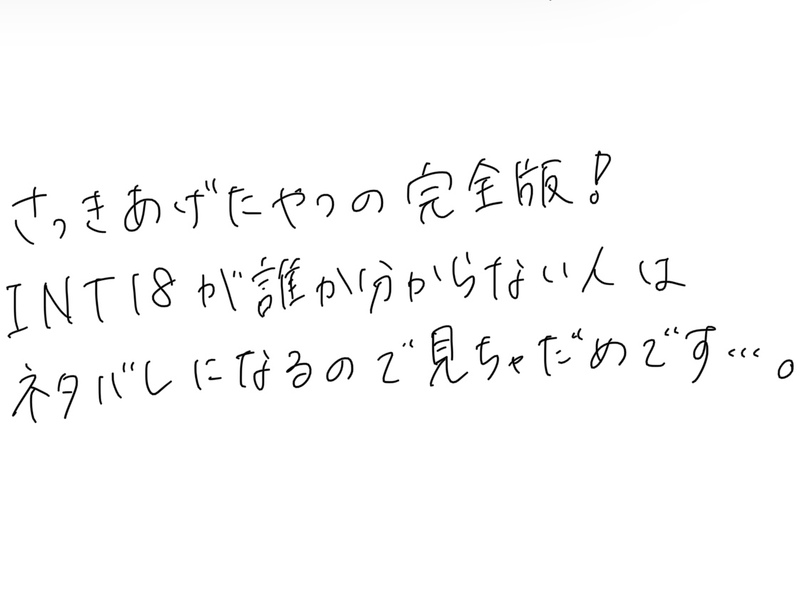 さっきあげたやつの完全版!
INT18が誰か分からない人は
ネタバレになるので見ちゃだめです…。